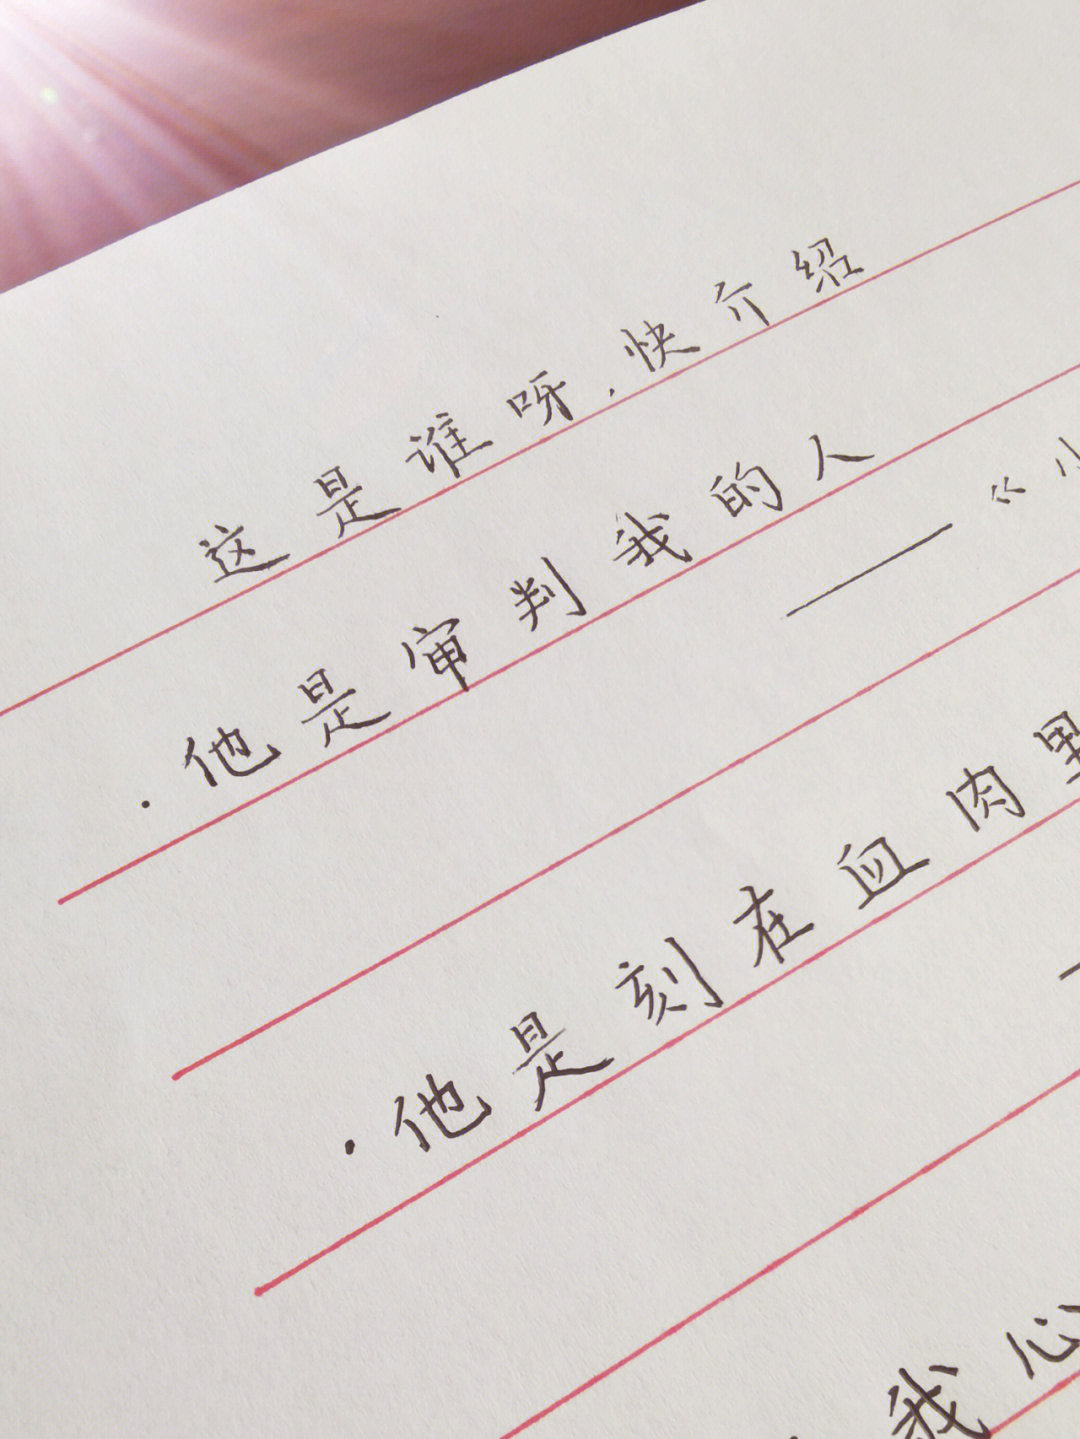 这是谁呀,快介绍
·他是审判我的人
——《小
·他是刻在血肉里
我心